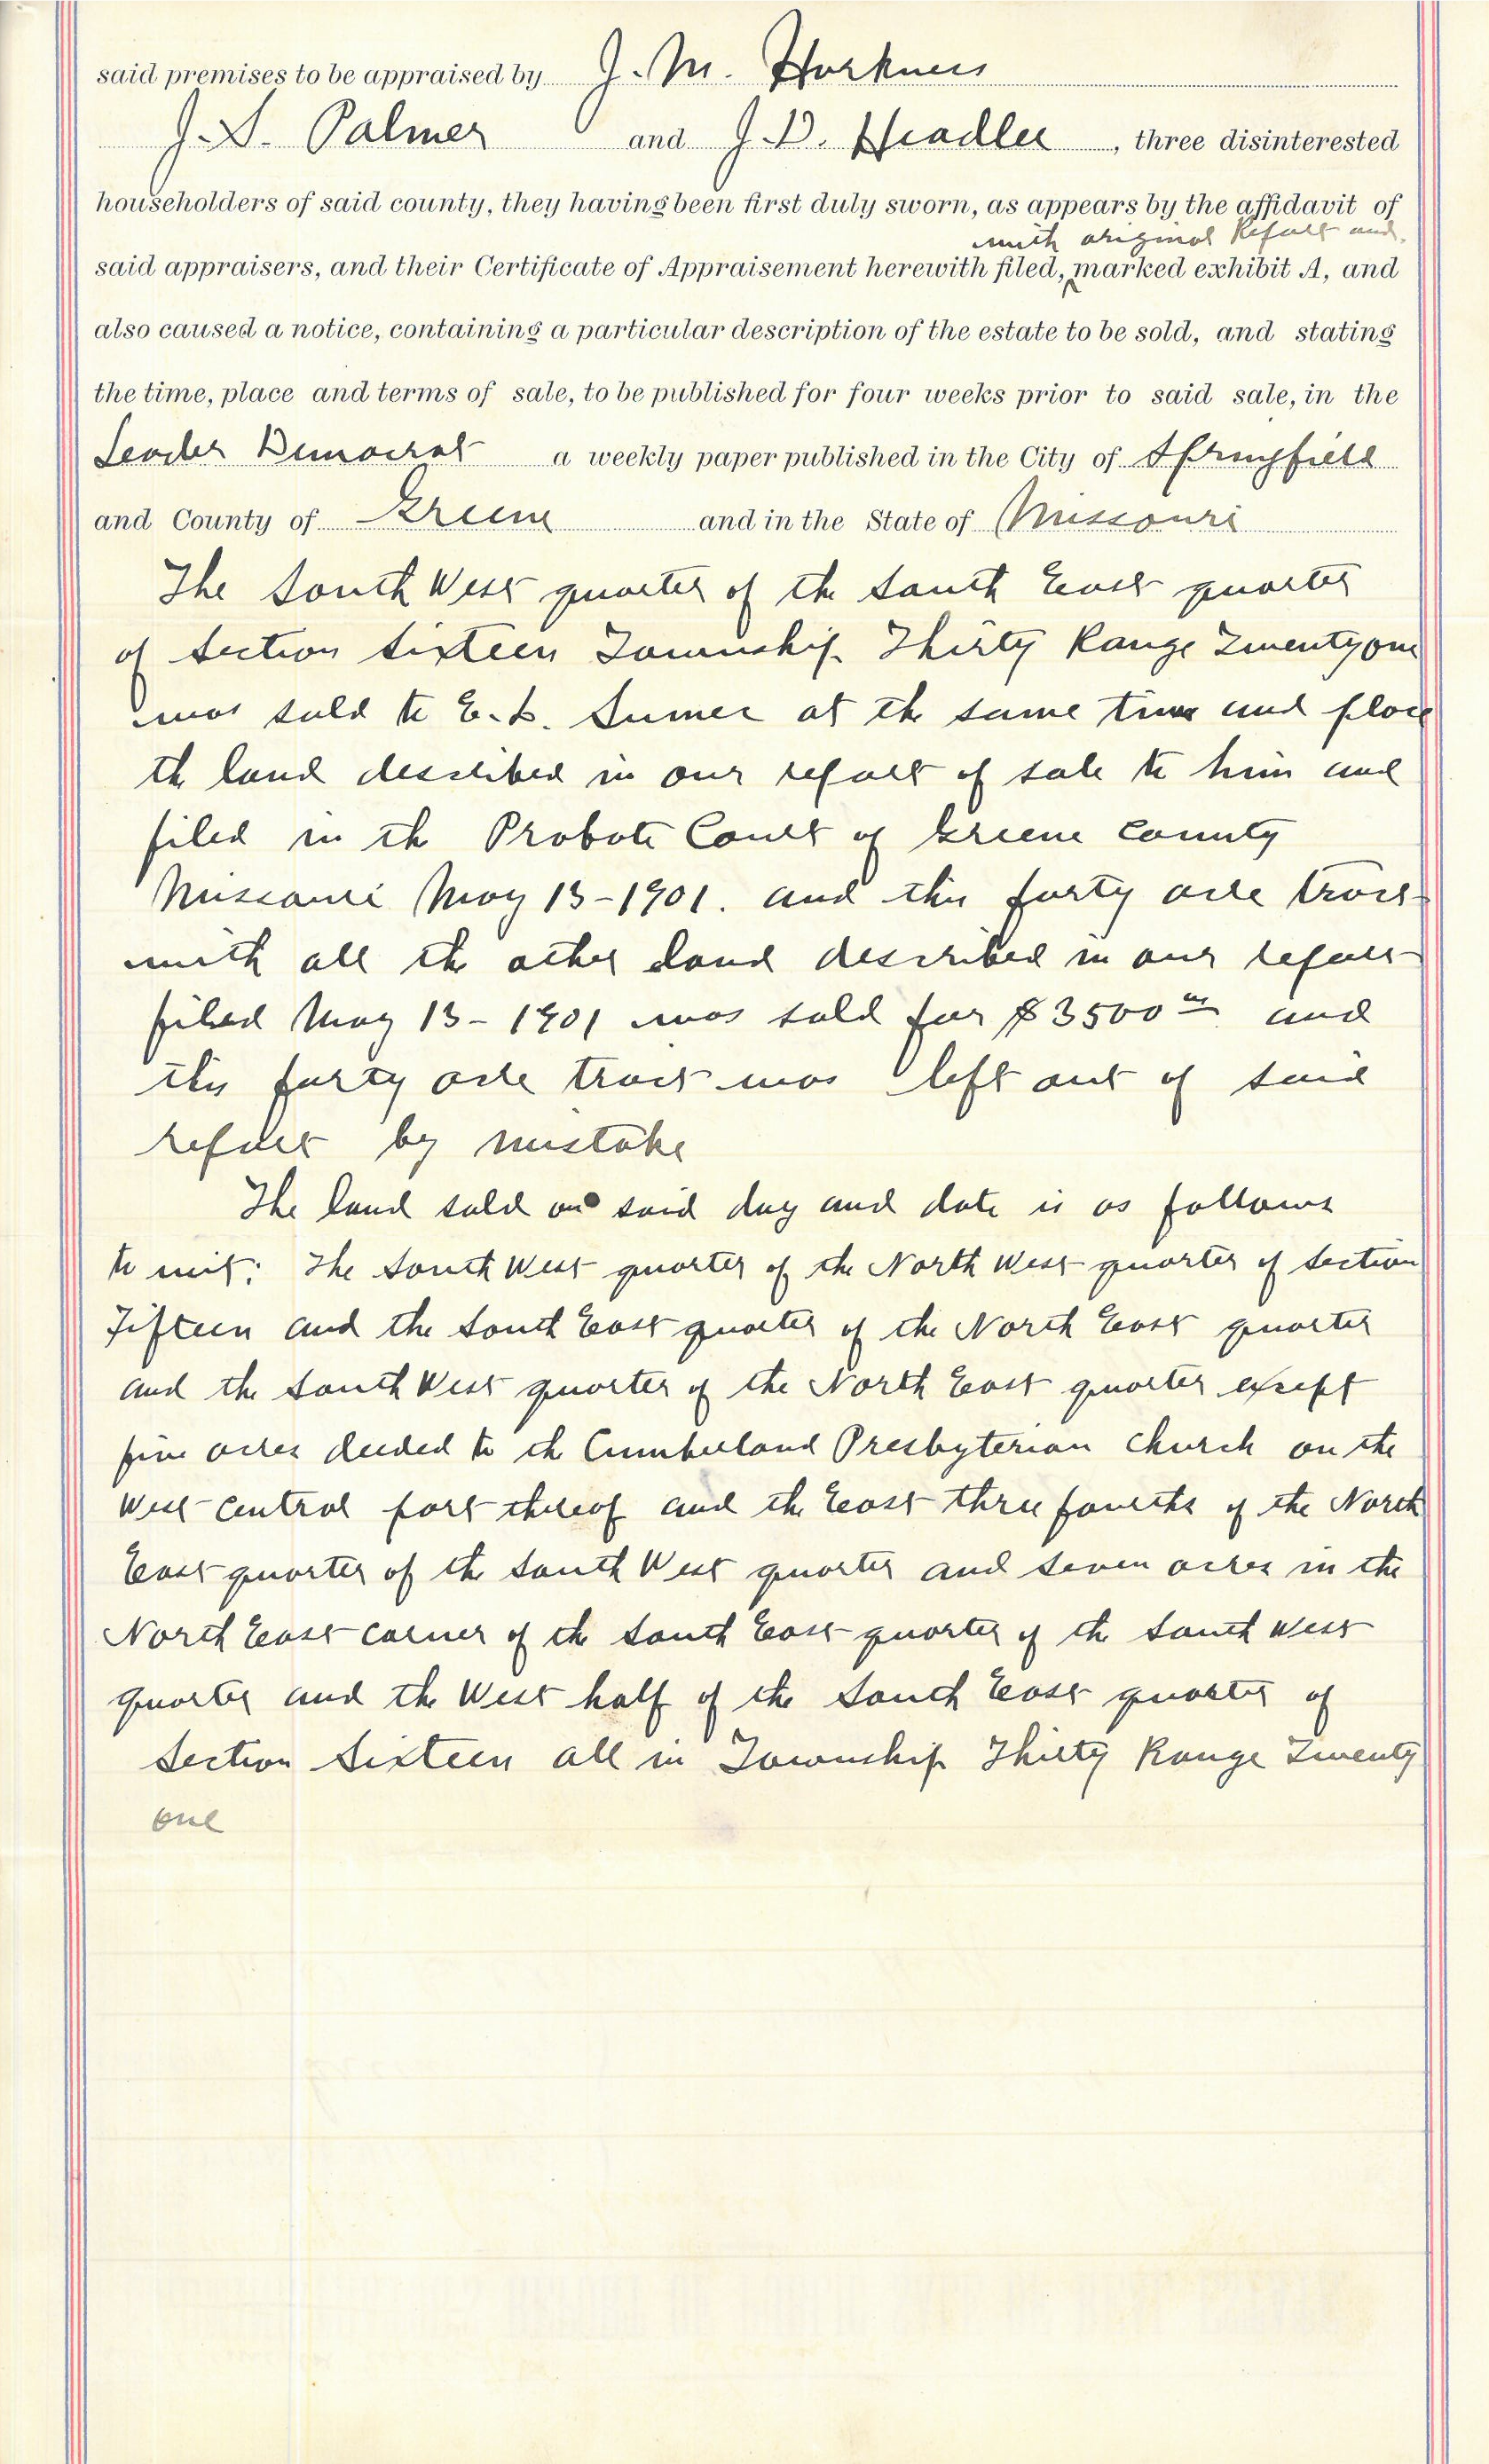 said premises to be appraised by J. M. Harkness
J. S. Palmer and J. D. Headlee, three disinterested
householders of said county, they having been first duly sworn, as appears by the affidavit of
with original Report and
said appraisers, and their Certificate of Appraisement herewith filed, marked exhibit A, and
also caused a notice, containing a particular description of the estate to be sold, and stating
the time, place and terms of sale, to be published for four weeks prior to said sale, in the
Leader Democrat a weekly paper published in the City of Springfield
and County of Greene and in the State of Missouri
The South West quarter of the South East quarter
of Section Sixteen Township Thirty Range Twenty one
was sold to E. L. Sumer at the same time and place
the land described in our report of sale to him and
filed in the Probate Court of Greene County
Missouri May 13-1901. and this forty acre tract
with all the other land described in our report
filed May 13-1901 was sold for $3500 00 and
this forty acre tract was left out of said
report by mistake
The land sold on said day and date is as follows
to wit: The South West quarter of the North West quarter of Section
Fifteen and the South East quarter of the North East quarter
and the South West quarter of the North East quarter except
five acres deeded to the Cumberland Presbyterian Church on the
West central part thereof and the East three fourths of the North
East quarter of the South West quarter and seven acres in the
North East corner of the South East quarter of the South West
quarter and the West half of the South East quarter of
Section Sixteen all in Township Thirty Range Twenty
one